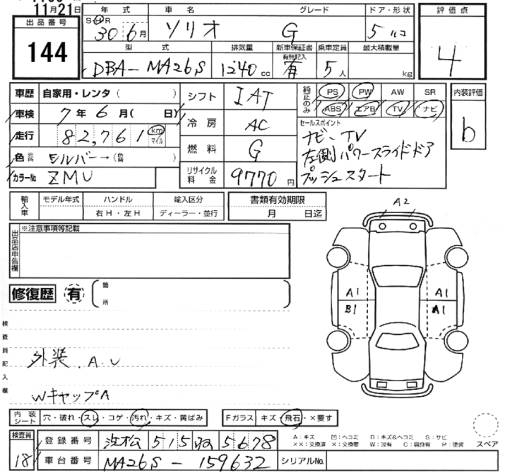 11月21日
出品番号
144
年式 車名 グレード ドア・形状
S H 30年 6月 ソリオ G 5ドア
評価点
4
型式 排気量 新車保証書 有無記入 乗車定員 最大積載量
DBA-MA26S 1240cc 有 5人 kg
車歴 自家用・レンタ( )
車検 7年 6月( 日)
走行 82,761 km マイル
色 シルバー→(替)
カラーNo ZMU
シフト IAT
冷房 AC
燃料 G
リサイクル料金 9770円
純正のみ PS PW AW SR
ABS エアB TV ナビ
セールスポイント
ナビ、TV
左側パワースライドドア
プッシュスタート
内装評価
b
輸入車 モデル年式 ハンドル 輸入区分
右H・左H ディーラー・並行
書類有効期限
月 日迄
出品店申告欄
※注意事項等記載
修復歴 有 箇所
検査員記入欄
外装.AU
WキャップA
A2
A1 A1
B1 A1
内装シート 穴・破れ・スレ・コゲ・汚れ・キズ・黄ばみ
Fガラス キズ・飛石・×要す
検査員
18
登録番号 浜松 515 5678
車台番号 MA26S-159632
シリアルNo.
A:キズ 凹:ヘコミ S:サビ
スペア